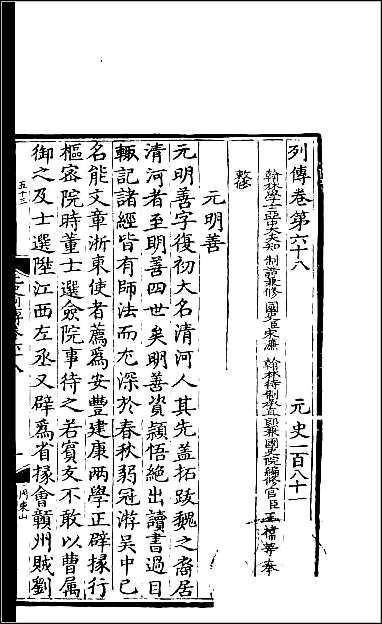 列傳卷第六十八　元史一百八十一
翰林學士亞中大夫知　制誥兼修　國史臣宋濂　翰林待制承直郎兼國史院編修官臣王禕等奉
敕修
元明善
元明善字復初大名清河人其先蓋拓跋魏之裔居
清河者至明善四世矣明善資穎悟絕出讀書過目
輒記諸經皆有師法而尤深於春秋弱冠游吳中已
名能文章浙東使者薦爲安豐建康兩學正辟掾行
樞密院時董士選僉院事待之若賓友不敢以曹屬
御之及士選陞江西左丞又辟爲省掾會贛州賊劉
五十三
周東山